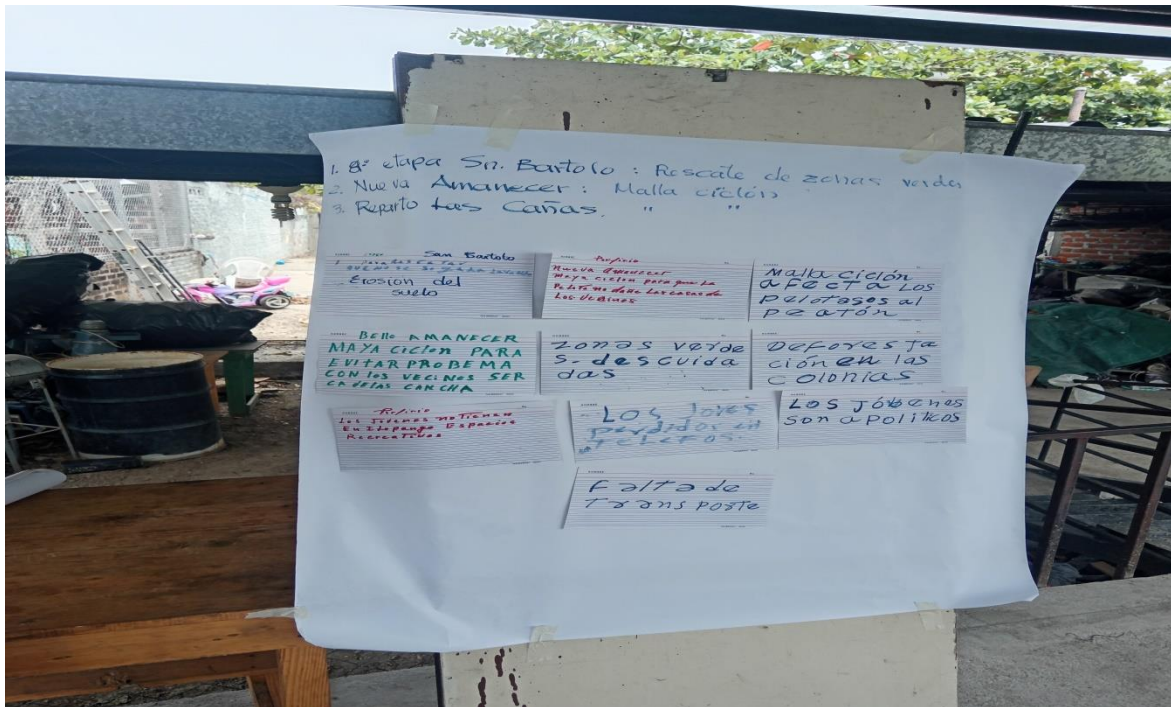 1. 8ª etapa Sn. Bartolo : Rescate de zonas verdes
2. Nueva Amanecer : Malla ciclón
3. Reparto Las Cañas. " "
San Bartolo
Erosión del
suelo
Prefirio
Nueva Amanecer
Maya ciclon para que La
Pelota no dañe Las casas de
Los Vecinos
Malla Ciclón
afecta Los
pelotasos al
peatón
Bello AMANECER
MAYA ciclon PARA
EVITAR PROBEMA
CON los VECINOS SER
CA delas CANCHA
zonas verde
s. descuida
das
Deforesta
ción en las
Colonias
Los Jóvenes no Tienen
En Ilopango Espacios
Recreativos
LOS Joves
perdidos en
Los Jóvenes
son apolíticos
Falta de
Transporte